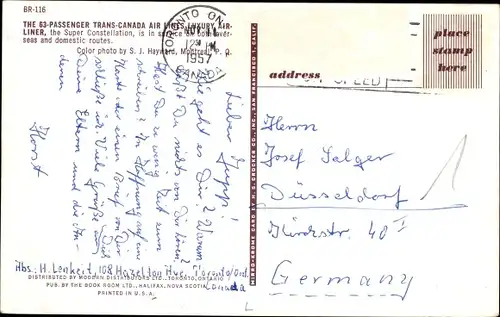 BR-116
THE 63-PASSENGER TRANS-CANADA AIR LINES LUXURY AIR-
LINER, the Super Constellation, is in service on both over-
seas and domestic routes.
Color photo by S. J. Hayward, Montreal, P. Q.
TORONTO ONT.
NOV
12 PM
1957
CANADA
place
stamp
here
address
Lieber Jupp!
Wie geht es Dir? Warum
läßt Du nichts von Dir hören?
Hast Du zu wenig Zeit zum
schreiben? In Hoffnung auf ein
einen Brief von Dir
schließe ich. Viele Grüße an Dich
Deine Eltern und die
Horst
Abs: H. Lenkeit, 108 Hazelton Ave. Toronto/Ont.
Canada
DISTRIBUTED BY MODERN DISTRIBUTORS LTD., TORONTO, ONTARIO
PUB. BY THE BOOK ROOM LTD., HALIFAX, NOVA SCOTIA
PRINTED IN U.S.A.
MIRRO-KROME CARD BY H. S. CROCKER CO., INC., SAN FRANCISCO 1, CALIF.
Herrn
Josef Salger
Düsseldorf
40 I
Germany